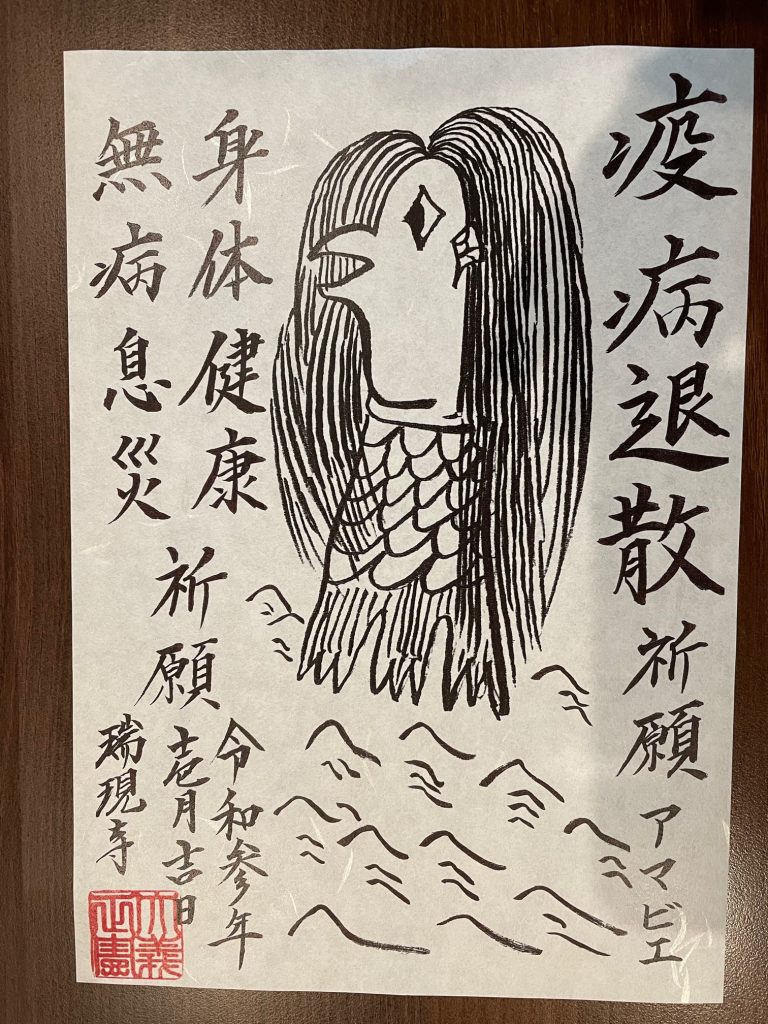 疫病退散祈願 アマビエ
身体健康
無病息災
祈願
令和参年
十壱月吉日
瑞現寺
大義
正憲